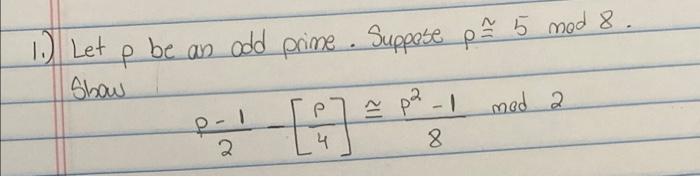 1.) Let p be an odd prime. Suppose p ≅ 5 mod 8.
Show
(p-1)/2 - [p/4] ≅ (p² - 1)/8 mod 2